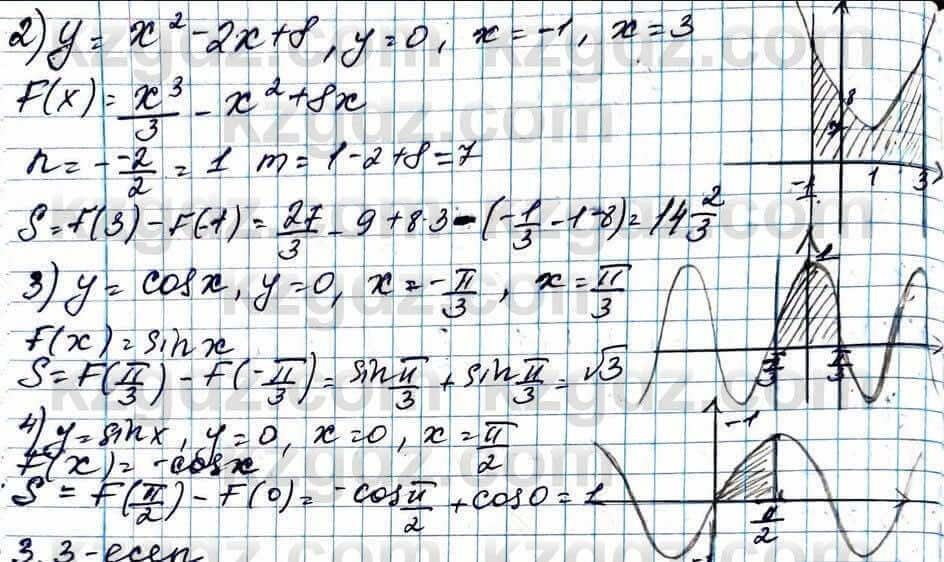 2) y = x² - 2x + 8, y = 0, x = -1, x = 3
F(x) = x³/3 - x² + 8x
n = - -2/2 = 1 m = 1 - 2 + 8 = 7
S = F(3) - F(-1) = 27/3 - 9 + 8·3 - (-1/3 - 1 - 8) = 14 2/3
8
7
-1 1 3
3) y = cos x, y = 0, x = -π/3, x = π/3
F(x) = sin x
S = F(π/3) - F(-π/3) = sin π/3 + sin π/3 = √3
1
π/3 π/3
4) y = sin x, y = 0, x = 0, x = π/2
F(x) = -cos x
S = F(π/2) - F(0) = -cos π/2 + cos 0 = 1
-1
π/2
-1
3. 3-есеп
kzgdz.com